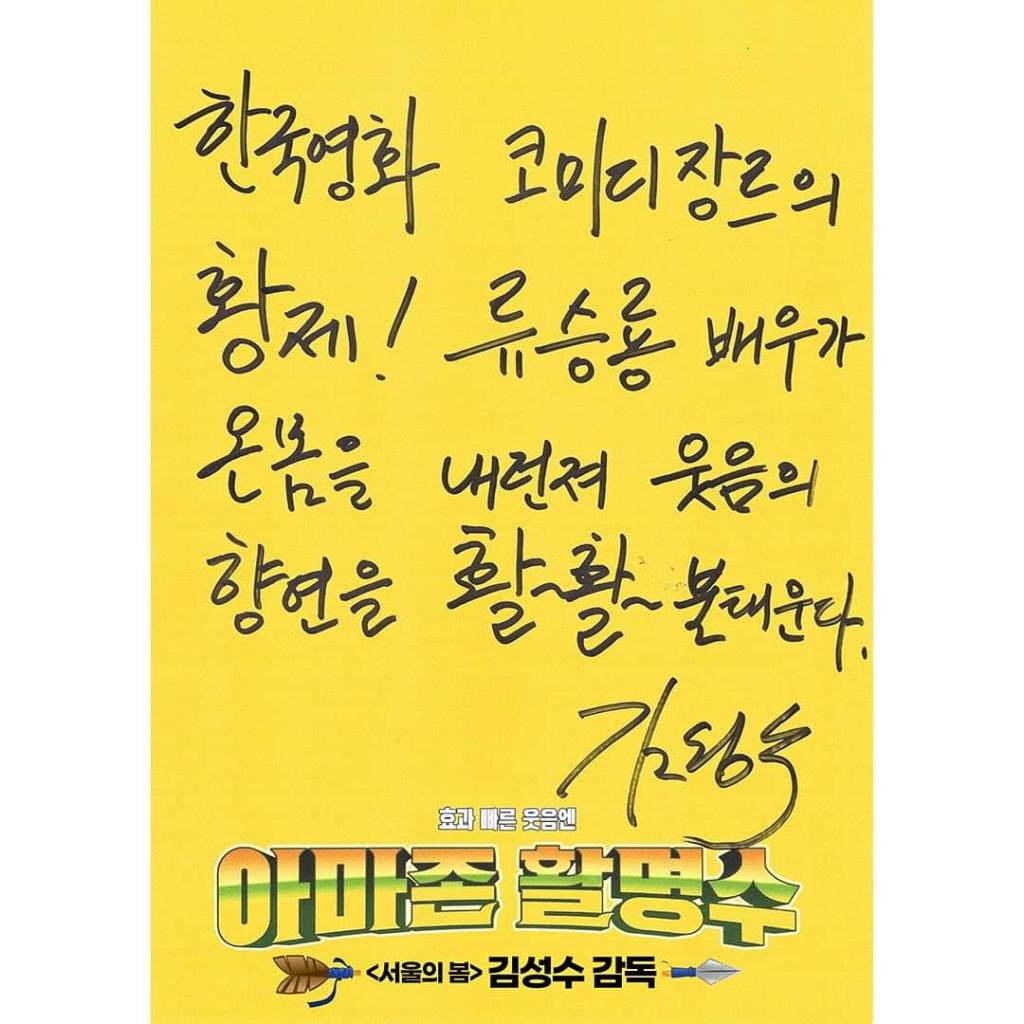 한국영화 코미디장르의
황제! 류승룡 배우가
온몸을 내던져 웃음의
향연을 활~활~ 불태운다.
김성수
효과 빠른 웃음엔
아마존 활명수
<서울의 봄> 김성수 감독